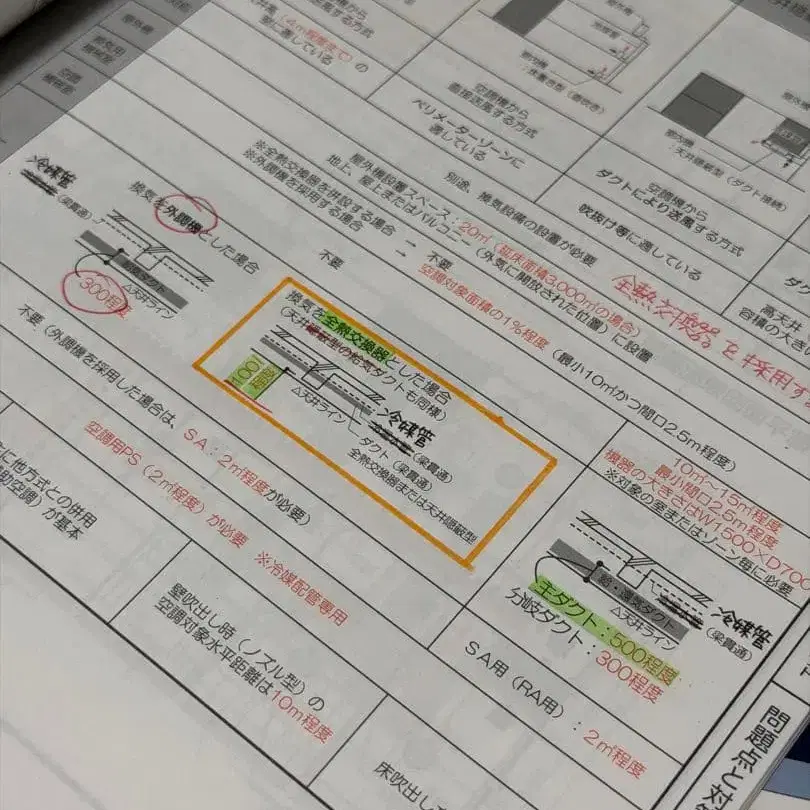 (4m程度まで)の
撃に適している
空調機から
直接送風する方式
ペリメーターゾーンに
適している
空調機から
ダクトにより送風する方式
吹抜け等に適している
別途、換気設備の設置が必要
全熱交換器を採用す
屋外機設置スペース:20㎡(延床面積3,000㎡の場合)
地上、屋上またはバルコニー(外気に開放された位置)に設置
※全熱交換器を併設する場合 → 不要
※外調機を採用する場合 → 空調対象面積の1%程度(最小10㎡かつ間口2.5m程度)
不要
冷媒管
(梁貫通)
換気を外調機とした場合
給気ダクト
△天井ライン
300程度
換気を全熱交換器とした場合
(天井隠蔽型の給気ダクトも同様)
100
程度
△天井ライン
冷媒管
(梁貫通)
ダクト(梁貫通)
全熱交換器または天井隠蔽型
10㎡~15㎡程度
最小間口2.5m程度
機器の大きさはW1500×D700
※対象の室またはゾーン毎に必要
給・還気ダクト
△天井ライン
冷媒管
(梁貫通)
主ダクト:500程度
分岐ダクト:300程度
不要(外調機を採用した場合は、SA:2㎡程度が必要)
空調用PS(2㎡程度)が必要 ※冷媒配管専用
SA用(RA用):2㎡程度
に他方式との併用
助空調)が基本
壁吹出し時(ノズル型)の
空調対象水平距離は10m程度
床吹出し
問題点と対